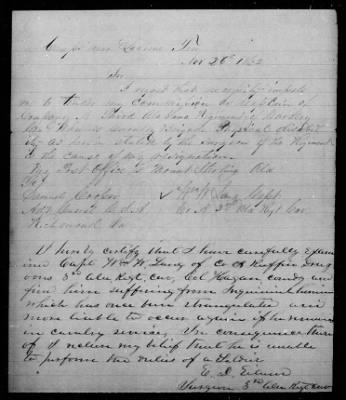 Camp near Tenn
Nov 26th 1862
Sir
I regret that necessity impels
me to tender my commission as Captain of
Company A Third Alabama Regiment,
Cav Brigade Physical disabil
ity as herein stated by the Surgeon of the Regiment
is the cause of my resignation.
My Post Office is Mount Sterling Ala
To
Samuel Cooper
Adjt General C.S.A
Richmond Va
Wm W Lang Capt
Co A 3rd Ala Regt Cav
I hereby certify that I have carefully exam
ined Capt W W Lang of Co A
3rd Ala Regt, Cav, Col Hagan, comdg and
find him suffering from Inguinal hernia
which has once been strangulated and is
more liable to occur again if he remains
in cavalry service. In consequence there
of I return my belief that he is unable
to perform the duties of a Soldier
Surgeon 3rd Ala Regt Cav